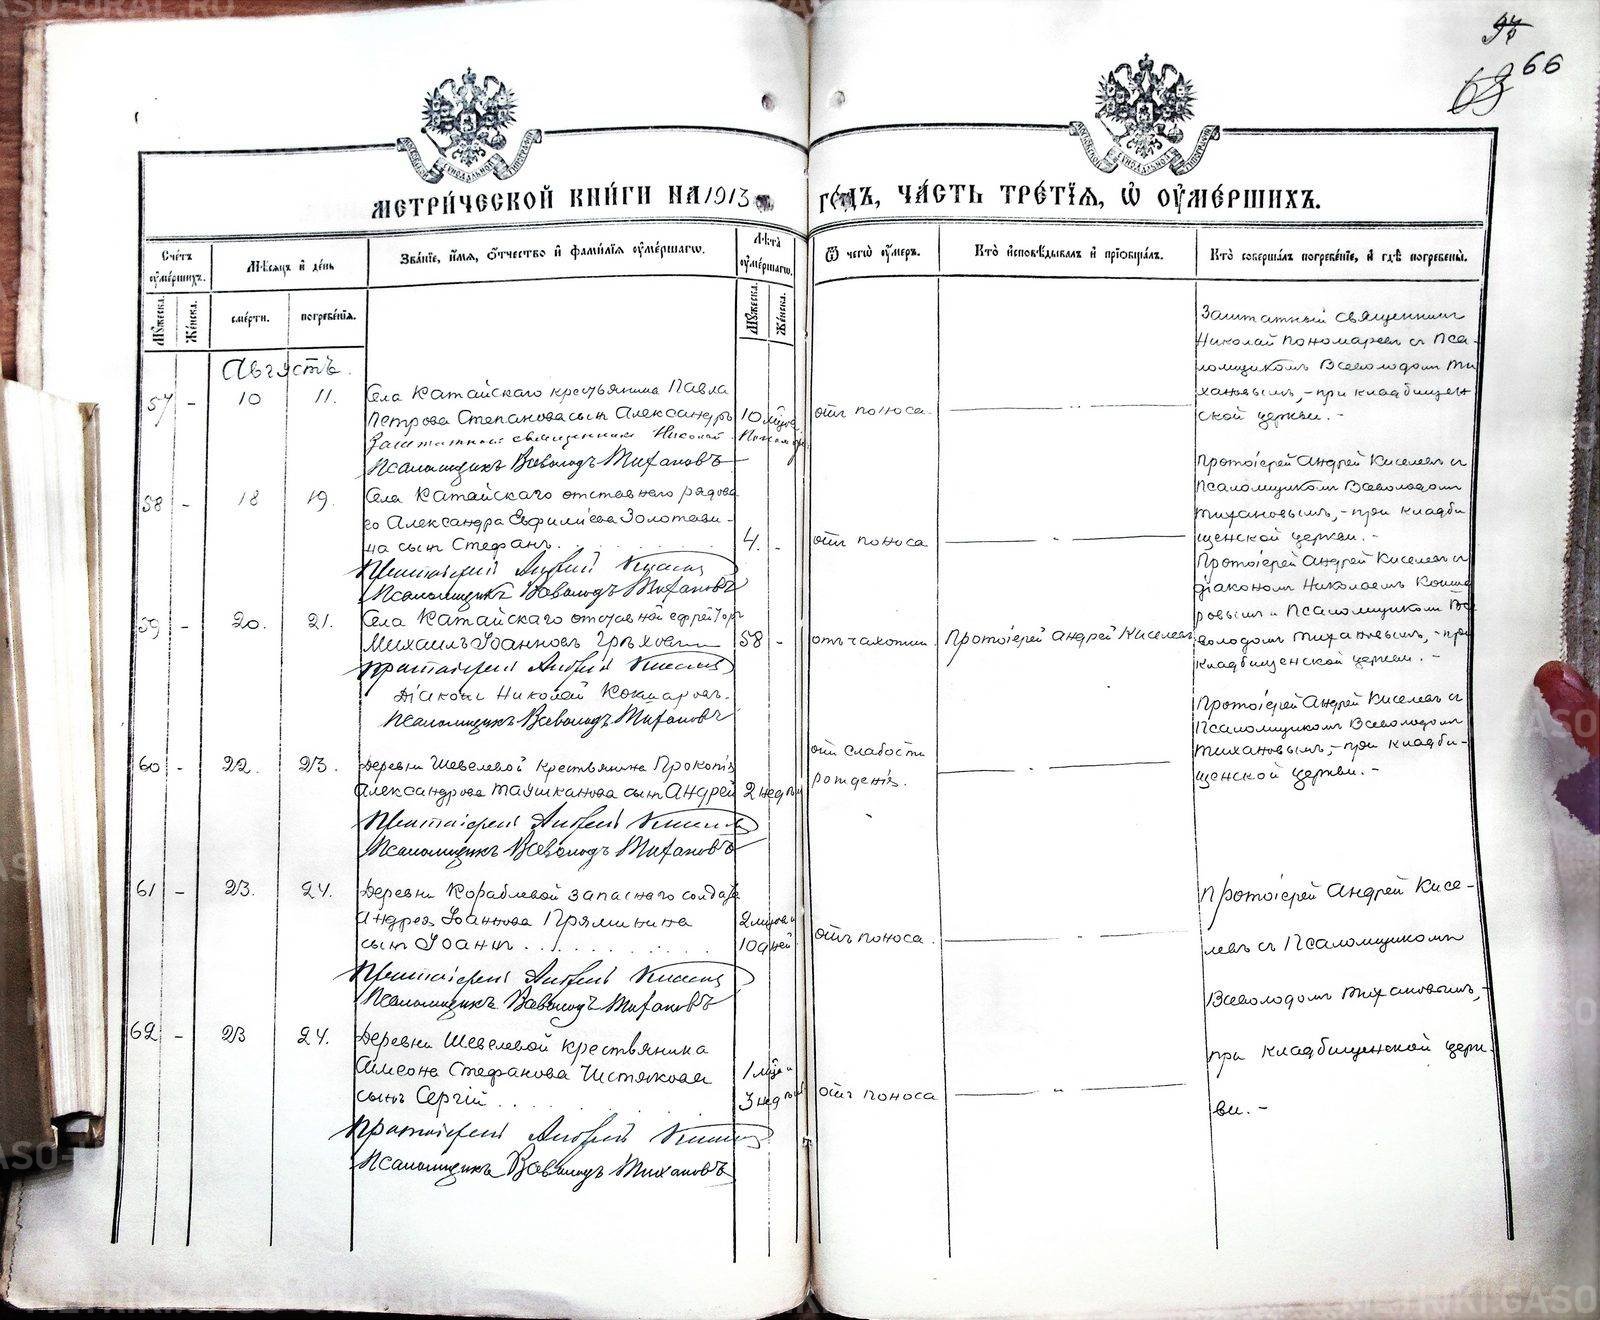 66
МЕТРИ́ЧЕСКОЙ КНИ́ГИ НА 1913 ГО́ДЪ, ЧА́СТЬ ТРЕ́ТЇѦ, Ѡ҆ ОУ҆МЕ́РШИХЪ.
Сче́тъ оу҆ме́ршихъ.
Мꙋ́жеска. Же́нска.
Мѣ́сѧцъ и҆ де́нь
сме́рти. погребе́нїѧ.
Зва́нїе, и҆́мѧ, ѻ҆́тчество и҆ фами́лїѧ оу҆ме́ршагѡ.
Лѣ́та оу҆ме́ршагѡ.
Мꙋ́жеска. Же́нска.
Ѿ чегѡ̀ оу҆́меръ.
Кто̀ и҆сповѣ́дывалъ и҆ прїобща́лъ.
Кто̀ соверша́лъ погребе́нїе, и҆ гдѣ̀ погребе́ны.
Августъ.
57 - 10 11.
Села Катайскаго крестьянина Павла
Петрова Степанова сынъ Александръ
Заштатный священникъ Николай Пономаревъ
Псаломщикъ Всеволодъ Тихановъ
10 мѣсяц.
отъ поноса
Заштатный священникъ
Николай Пономаревъ съ Пса-
ломщикомъ Всеволодомъ Ти-
хановымъ, - при кладбищен-
ской церкви. -
58 - 18 19.
Села Катайскаго отставного рядова-
го Александра Евфимiева Золотави-
на сынъ Стефанъ
Протоіерей Андрей Киселевъ
Псаломщикъ Всеволодъ Тихановъ
4. -
отъ поноса
Протоіерей Андрей Киселевъ съ
Псаломщикомъ Всеволодомъ
Тихановымъ, - при кладби-
щенской церкви. -
59 - 20. 21.
Села Катайскаго отставной ефрейторъ
Михаилъ Іоанновъ Грѣховъ
Протоіерей Андрей Киселевъ
Діаконъ Николай Кошкаровъ.
Псаломщикъ Всеволодъ Тихановъ
58 -
отъ чахотки
Протоіерей Андрей Киселевъ
Протоіерей Андрей Киселевъ съ
діакономъ Николаемъ Кошка-
ровымъ и Псаломщикомъ Все-
володомъ Тихановымъ, - при
кладбищенской церкви. -
60 - 22. 23.
Деревни Шевелевой крестьянина Прокопія
Александрова Таушканова сынъ Андрей
Протоіерей Андрей Киселевъ
Псаломщикъ Всеволодъ Тихановъ
2 недѣли
отъ слабости
рожденія.
Протоіерей Андрей Киселевъ съ
Псаломщикомъ Всеволодомъ
Тихановымъ, - при кладби-
щенской церкви. -
61 - 23. 24.
Деревни Кораблевой запаснаго солдата
Андрея Іоаннова Прямини́на
сынъ Іоаннъ
Протоіерей Андрей Киселевъ
Псаломщикъ Всеволодъ Тихановъ
2 мѣсяца и
10 дней
отъ поноса.
Протоіерей Андрей Кисе-
левъ съ Псаломщикомъ
Всеволодомъ Тихановымъ, -
при кладбищенской церк-
ви. -
62 - 23 24.
Деревни Шевелевой крестьянина
Симеона Стефанова Чистякова
сынъ Сергій
Протоіерей Андрей Киселевъ
Псаломщикъ Всеволодъ Тихановъ
1 мѣсяц и
3 недѣли
отъ поноса